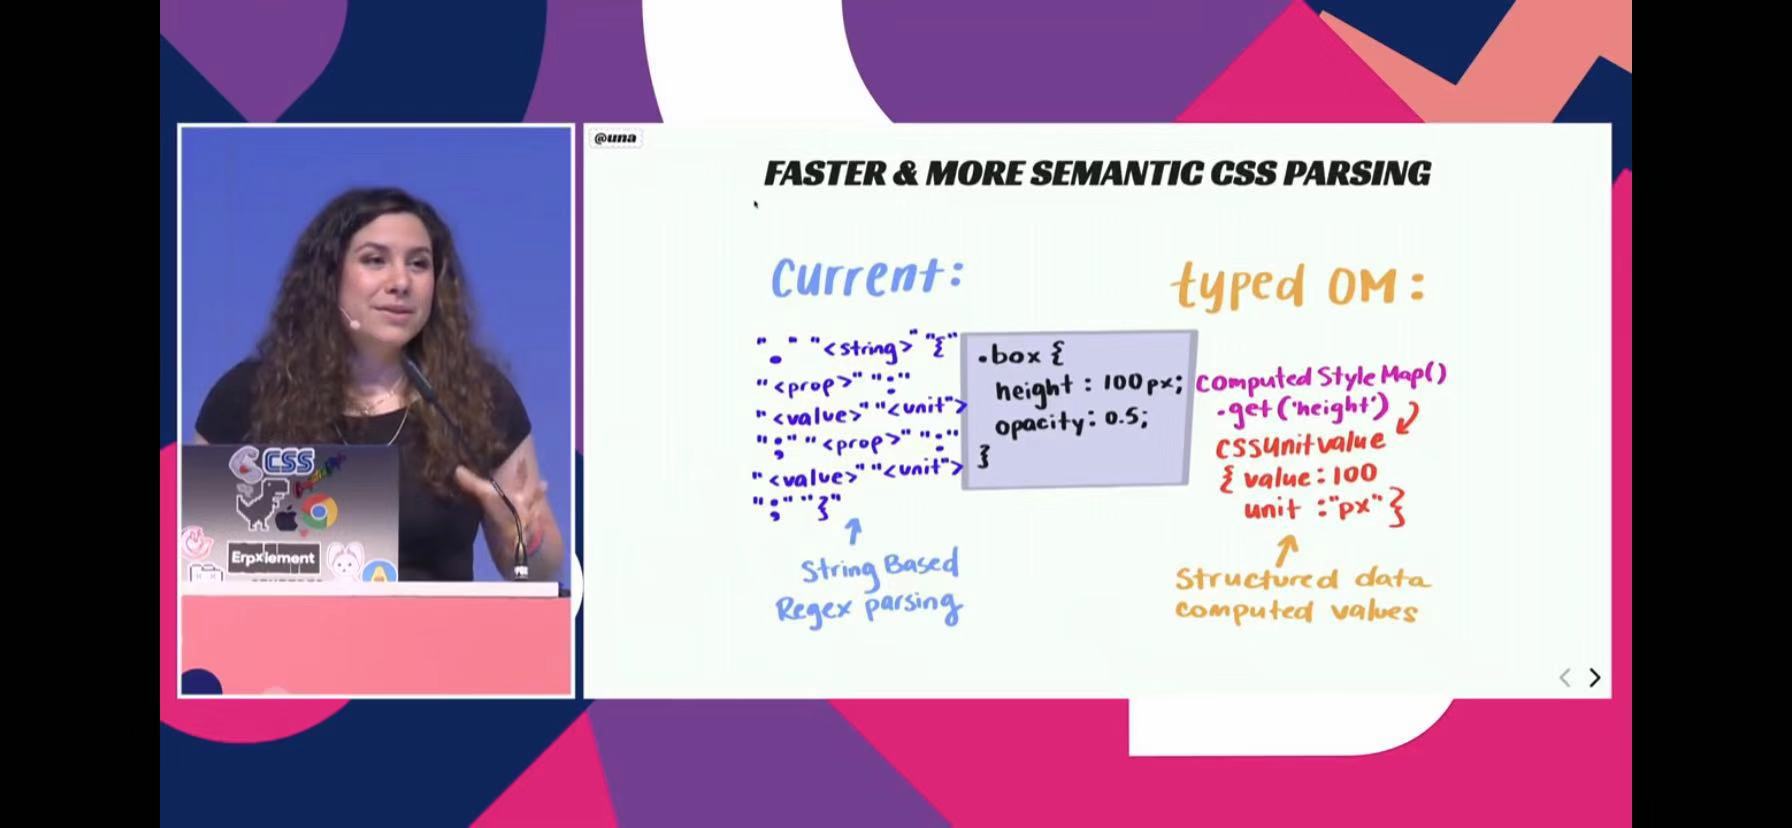 @una
FASTER & MORE SEMANTIC CSS PARSING
Current:
"." "<string>" "{"
"<prop>" ":"
"<value>" "<unit">
";" "<prop>" ":"
"<value>" "<unit">
";" "}"
String Based
Regex parsing
.box {
height : 100px;
opacity: 0.5;
}
typed OM:
computedStyleMap()
.get('height')
cssunitvalue
{ value:100
unit :"px"}
Structured data
computed values
CSS
Erpxlement